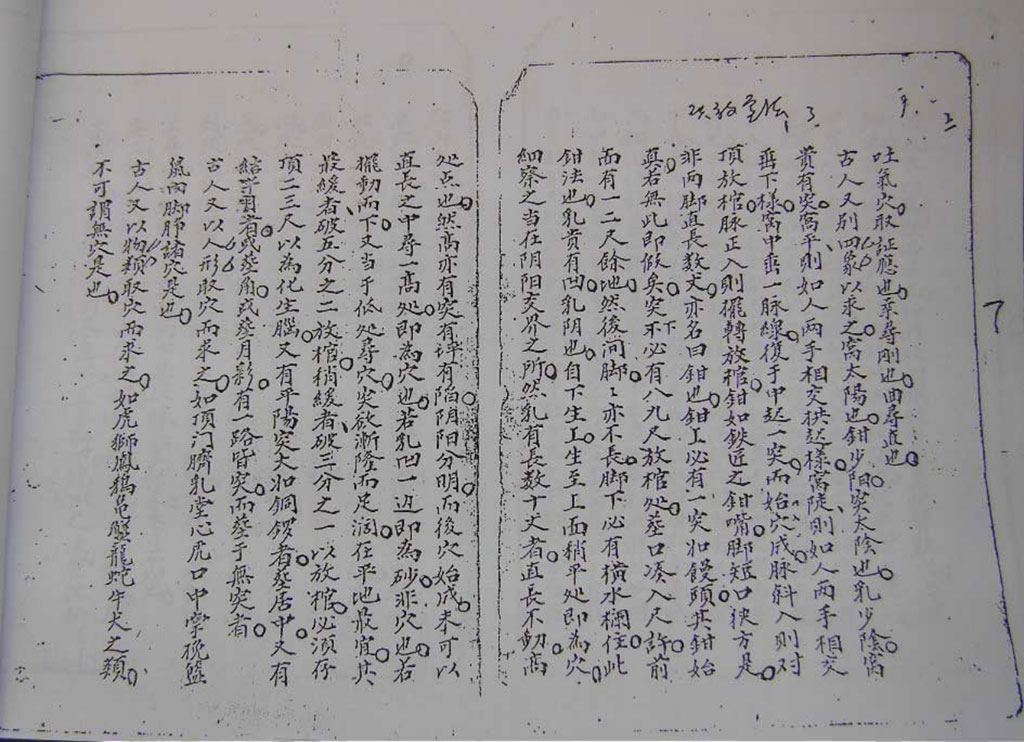 吐氣穴取証應也系尋剛也曲尋直也
古人又别四象以求之窩太陽也鉗少阳突太陰也乳少陰窩
貴有突窩平則如人两手相交拱起樣窩陡則如人两手相交
垂下樣窩中垂一脉線復于中起一突而始穴成脉斜入則对
頂放棺脉正入則擺轉放棺鉗如鉄匠之鉗嘴脚短口狭方是
非两脚直長数丈亦名曰鉗也鉗上必有一突如饅頭其鉗始
真若無此即假矣突不必有八九尺放棺处葬口凑入尺許前
面有一二尺餘地然後河脚亦不長脚下必有橫水欄住此
鉗法也乳貴有凹乳阴也自下生上生至上面稍平处即為穴
細察之当在阴阳交界之所然乳有長数十丈者直長不動高
处点也然高亦有突有坪有陷阴阳分明而後穴始成未可以
直長之中尋一高处即為穴也若乳凹一边即為砂非穴也若
擺動而下又当于低处尋穴突欲漸隆而足润在平地最宜其
最緩者破五分之二放棺稍緩者破三分之一以放棺必須存
頂二三尺以為化生腦又有平陽突大如銅鑼者葬居中又有
者或葬角或葬月影有一路皆突而葬于無突者
古人又以人形取穴而求之如頂门臍乳堂心虎口中掌挽籃
两脚肺諸穴是也
古人又以物類取穴而求之如虎獅鳳鵝盤龍蛇牛犬之類
不可謂無穴是也